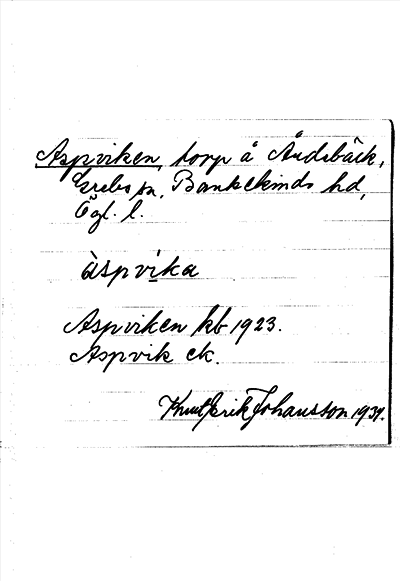 Aspviken, torp å Åndebäck,
Grebo sn, Bankekinds hd,
Ögl. l.
àspvi̲ka
Aspviken kb 1923.
Aspvik ek.
Knut Erik Johansson 1931.